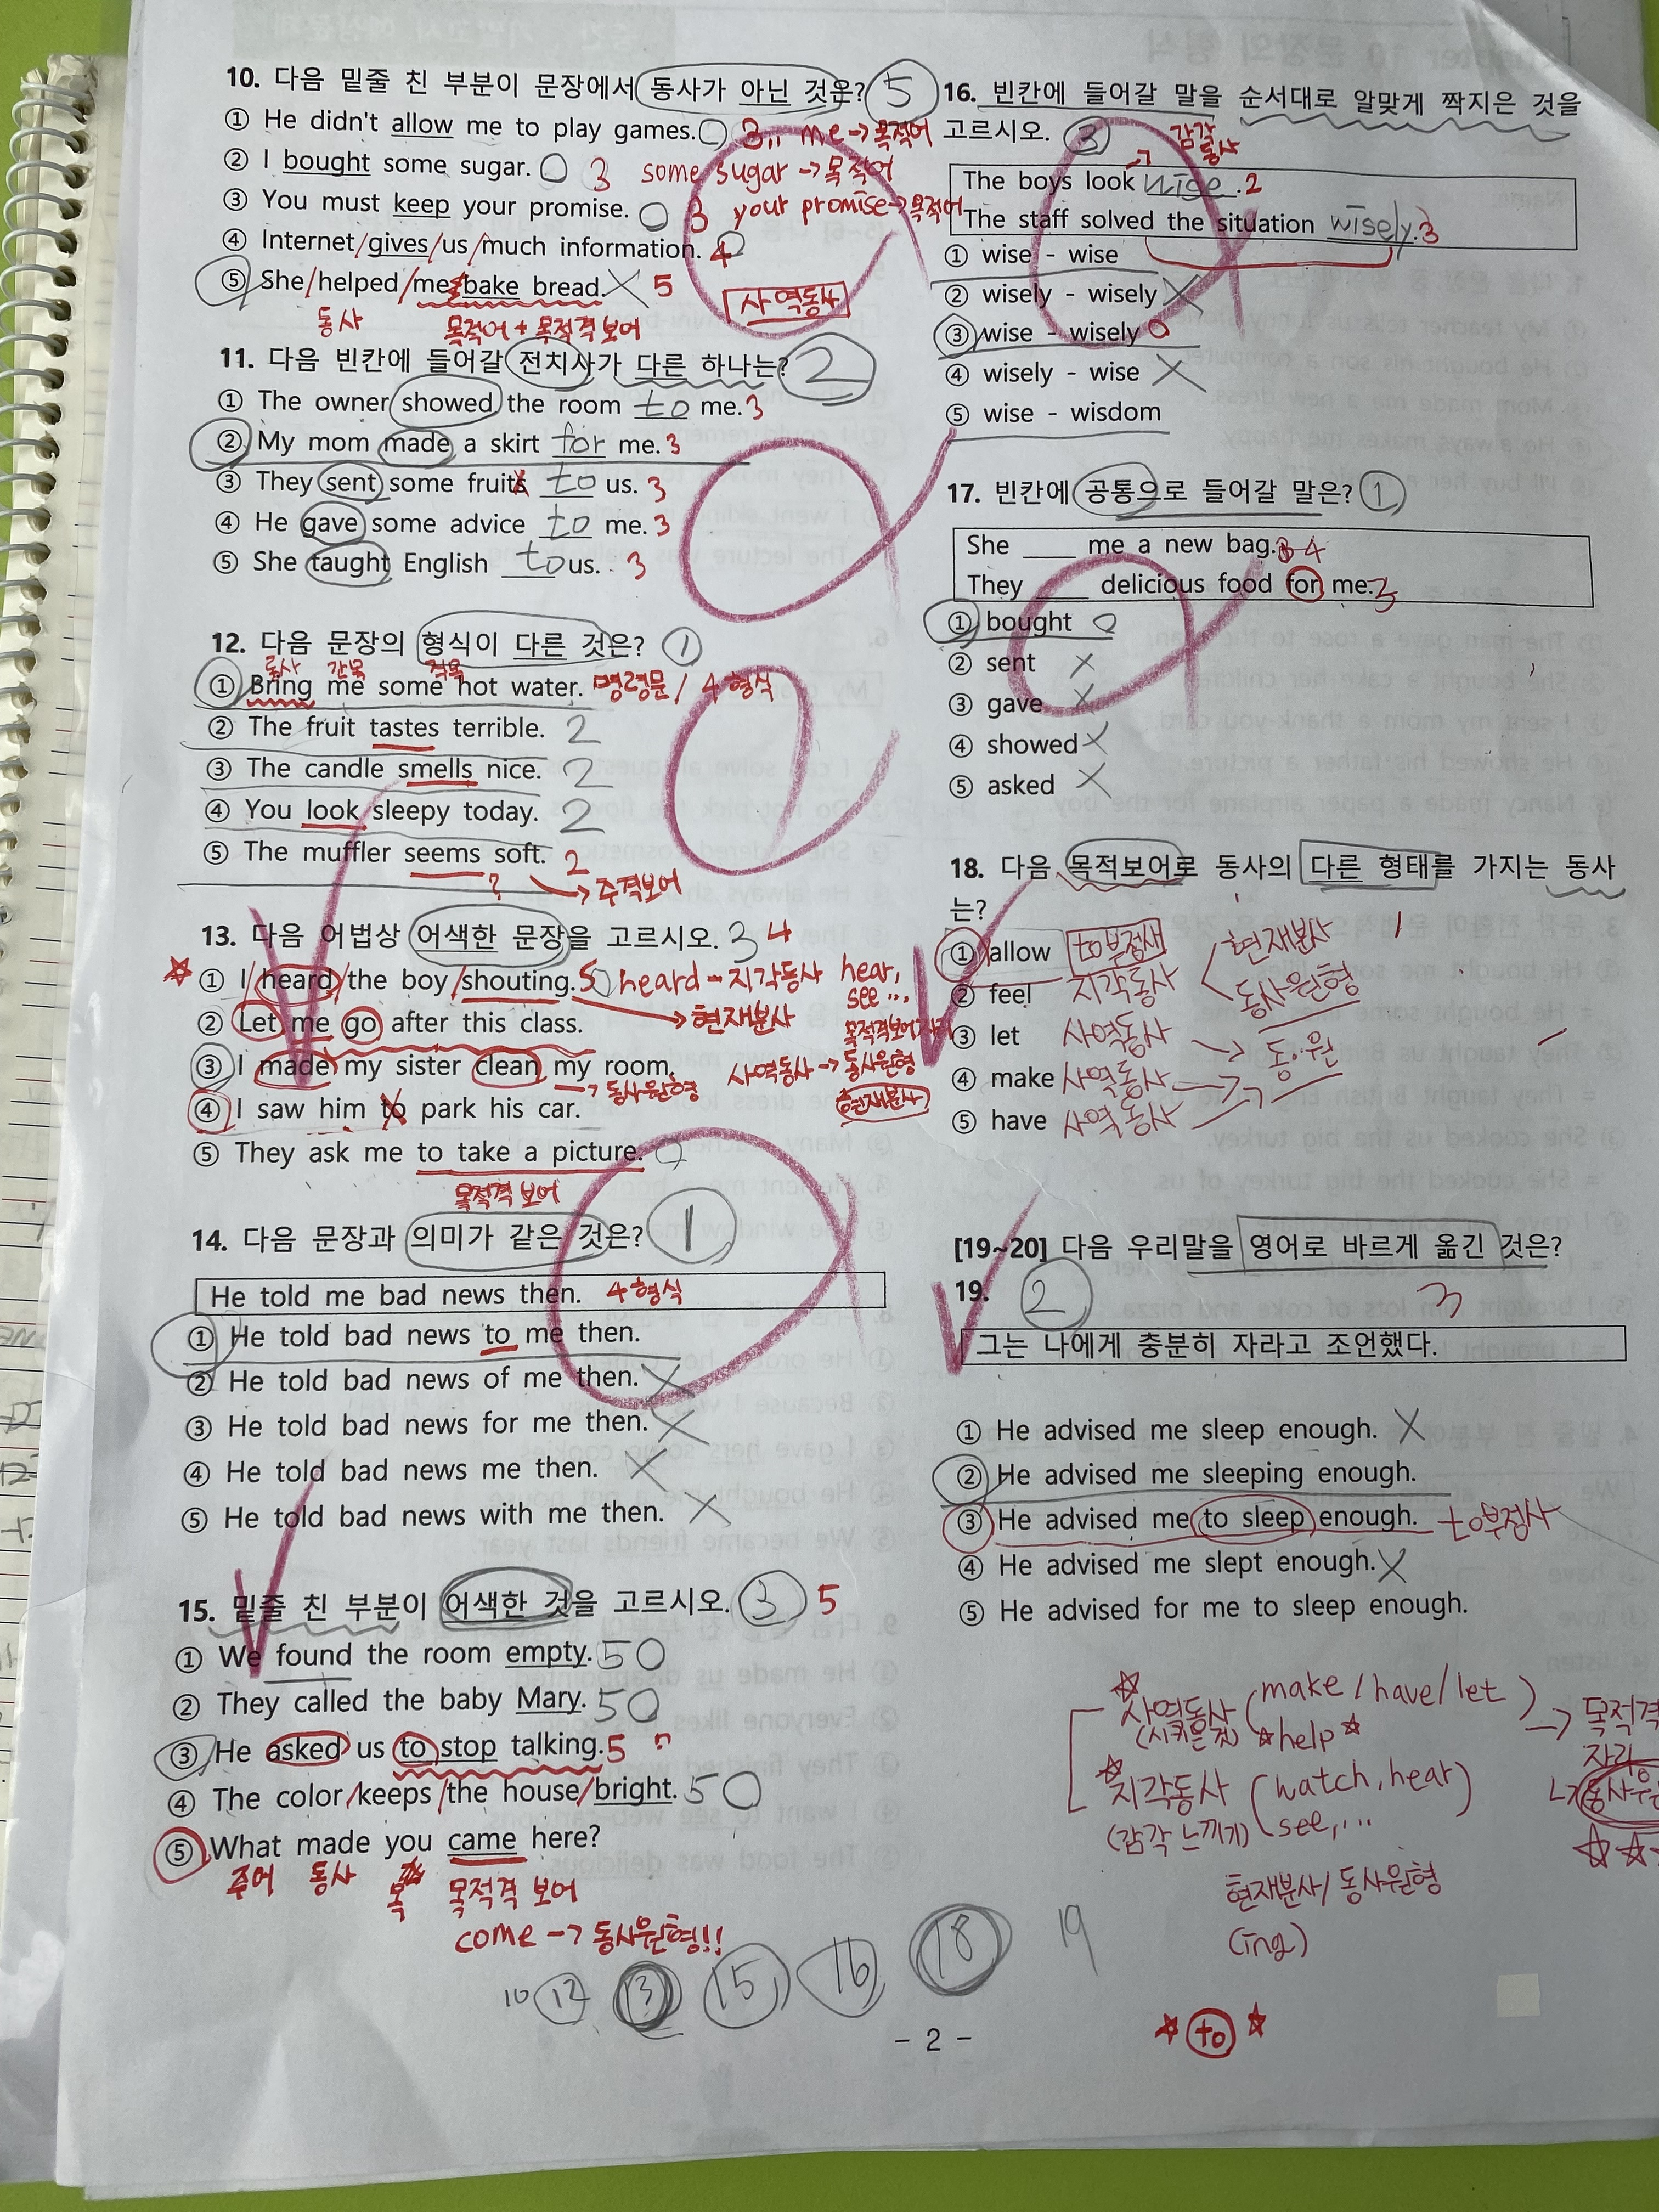 10. 다음 밑줄 친 부분이 문장에서 동사가 아닌 것은? 5
① He didn't allow me to play games. me → 목적어
② I bought some sugar. 3 some sugar → 목적어
③ You must keep your promise. 3 your promise → 목적어
④ Internet/gives/us/much information. 4
⑤ She/helped/me/bake bread. X 5 사역동사
동사 목적어 + 목적격 보어
11. 다음 빈칸에 들어갈 전치사가 다른 하나는? 2
① The owner showed the room to me. 3
② My mom made a skirt for me. 3
③ They sent some fruits to us. 3
④ He gave some advice to me. 3
⑤ She taught English to us. 3
12. 다음 문장의 형식이 다른 것은? 1
동사 간목 직목
① Bring me some hot water. 명령문 / 4형식
② The fruit tastes terrible. 2
③ The candle smells nice. 2
④ You look sleepy today. 2
⑤ The muffler seems soft. 2
? → 주격보어
13. 다음 어법상 어색한 문장을 고르시오. 3 4
① I/heard/the boy/shouting. 5 heard - 지각동사 hear, see...
→ 현재분사
② Let me go after this class.
목적격보어
③ I made my sister clean my room. 사역동사 → 동사원형
→ 동사원형 현재분사
④ I saw him to park his car.
⑤ They ask me to take a picture.
목적격 보어
14. 다음 문장과 의미가 같은 것은? 1
He told me bad news then. 4형식
① He told bad news to me then.
② He told bad news of me then. X
③ He told bad news for me then. X
④ He told bad news me then. X
⑤ He told bad news with me then. X
15. 밑줄 친 부분이 어색한 것을 고르시오. 3 5
① We found the room empty. 5 O
② They called the baby Mary. 5 O
③ He asked us to stop talking. 5
④ The color/keeps/the house/bright. 5 O
⑤ What made you came here?
주어 동사 목 목적격 보어
come → 동사원형!!
10 12 13 15 16 18 19
16. 빈칸에 들어갈 말을 순서대로 알맞게 짝지은 것을
고르시오. 3 감각동사
The boys look wise. 2
The staff solved the situation wisely. 3
① wise - wise
② wisely - wisely X
③ wise - wisely O
④ wisely - wise X
⑤ wise - wisdom
17. 빈칸에 공통으로 들어갈 말은? 1
She ____ me a new bag. 4
They ____ delicious food for me. 3
① bought O
② sent X
③ gave X
④ showed X
⑤ asked X
18. 다음 목적보어로 동사의 다른 형태를 가지는 동사
는?
① allow to부정사
② feel 지각동사 < 현재분사 동사원형
③ let 사역동사 → 동·원
④ make 사역동사 →
⑤ have 사역동사 →
[19~20] 다음 우리말을 영어로 바르게 옮긴 것은?
19. 2 3
그는 나에게 충분히 자라고 조언했다.
① He advised me sleep enough. X
② He advised me sleeping enough.
③ He advised me to sleep enough. to부정사
④ He advised me slept enough. X
⑤ He advised for me to sleep enough.
☆ 사역동사 (make / have / let) → 목적격
(시키는 것) ☆help☆ 자리
☆ 지각동사 (watch, hear)
(감각 느끼기) see, ...
현재분사 / 동사원형
(ing)
- 2 -
☆ to ☆